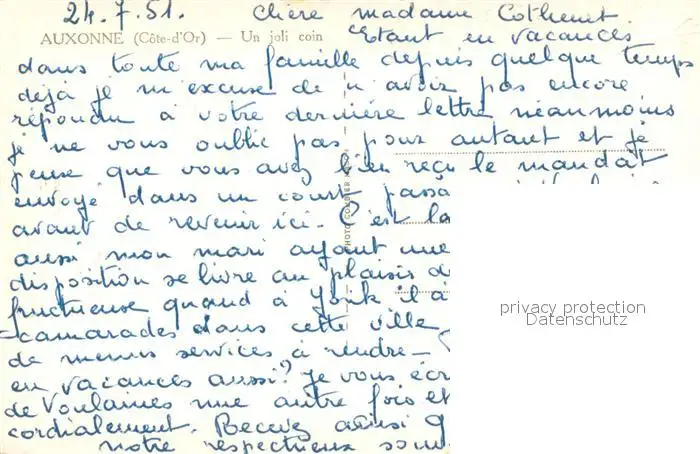 24.7.51. Chère madame Cothenet.
AUXONNE (Côte-d'Or) — Un joli coin
Etant en vacances
dans toute ma famille depuis quelque temps
déjà je m'excuse de n'avoir pas encore
répondu à votre dernière lettre néanmoins
je ne vous oublie pas pour autant et je
pense que vous avez bien reçu le mandat
envoyé dans un court passa
avant de revenir ici. C'est la
aussi mon mari ayant une
disposition se livre au plaisir d
fructueuse quand à Yorik il a
camarades dans cette ville
de menus services à rendre_
en vacances aussi? Je vous écr
de Voulaines une autre fois et
cordialement. Recevez ainsi
notre respectueux souv
privacy protection
Datenschutz